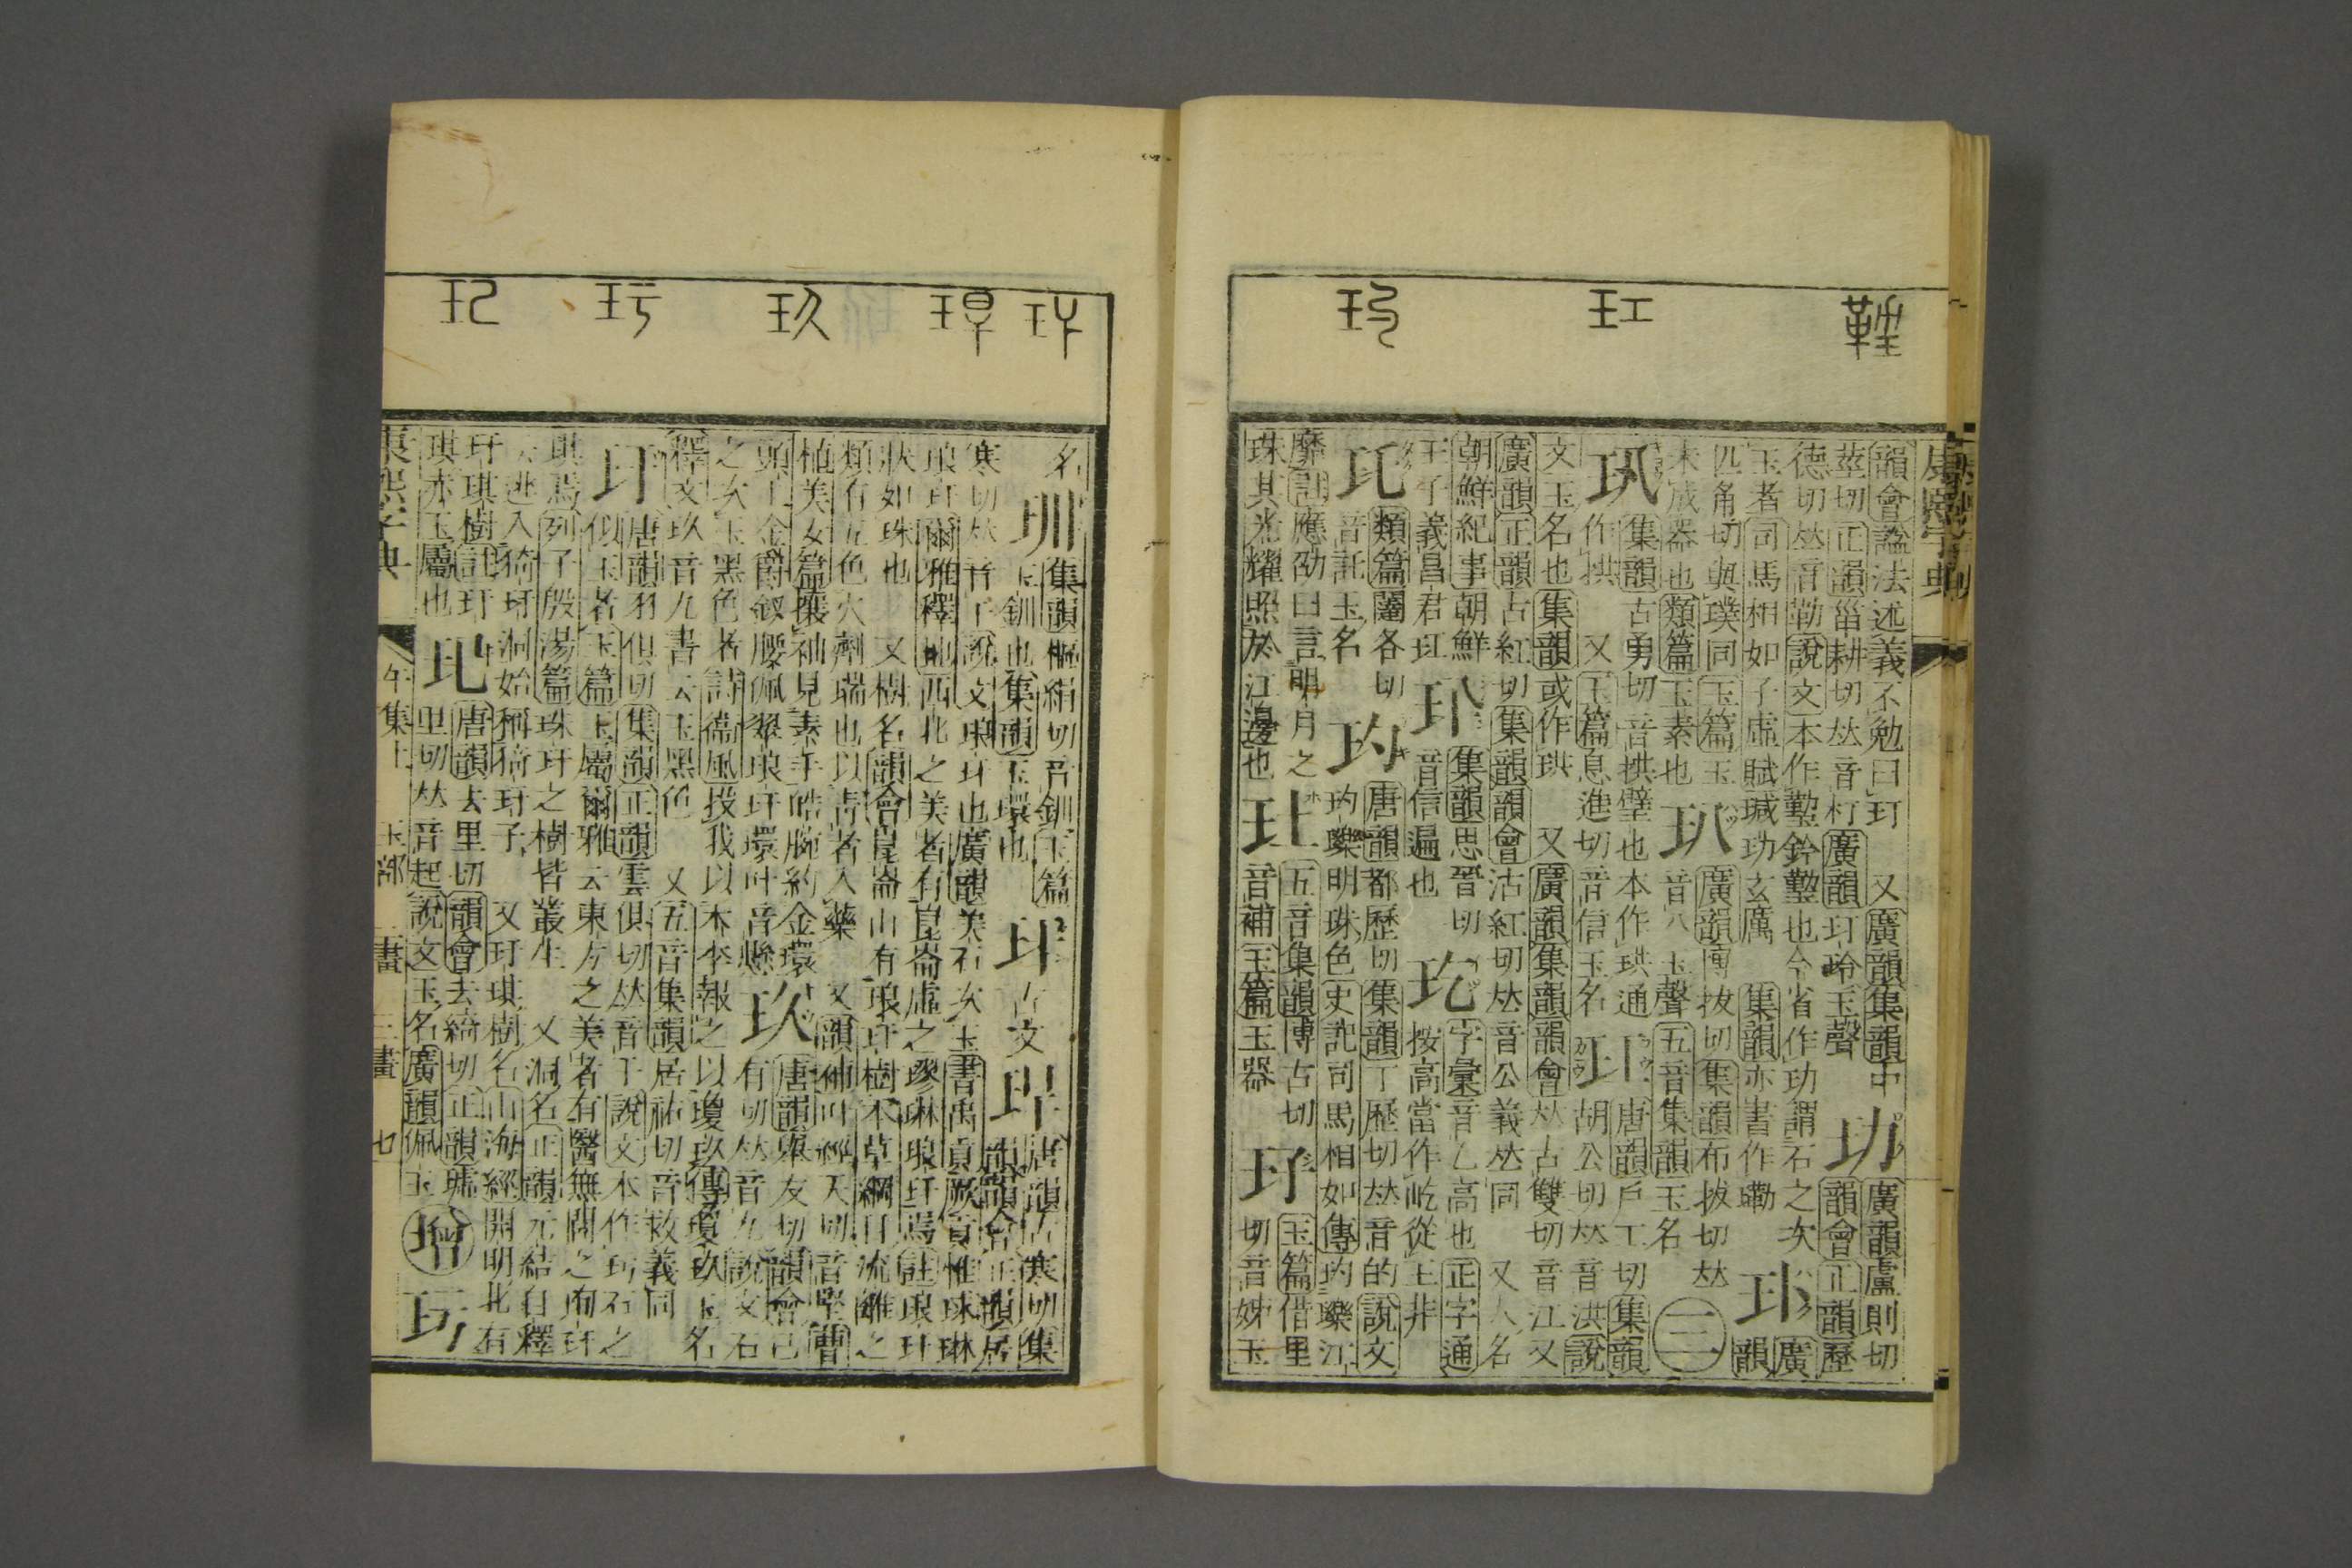 韻會諡法述義不勉曰玎　又廣韻集韻中
莖切正韻甾耕切𠀤音朾廣韻玎玲玉聲
玏
廣韻盧則切
韻會正韻歷
德切𠀤音勒說文本作𤪌玪𤪌也今省作玏謂石之次
玉者司馬相如子虛賦瑊玏玄厲　集韻亦書作嘞
㺪
廣
韻
匹角切與璞同玉篇玉
未成器也類篇玉素也
玐
廣韻博拔切集韻布拔切𠀤
音八玉聲五音集韻玉名
三
㺬
集韻古勇切音拱璧也本作珙通
作拱　又玉篇息進切音信玉名
玒
唐韻戶工切集韻
胡公切𠀤音洪說
文玉名也集韻或作珙　又廣韻集韻韻會𠀤古雙切音江又
廣韻正韻古紅切集韻韻會沽紅切𠀤音公義𠀤同　又人名
朝鮮紀事朝鮮
王子義昌君玒
集韻思晉切
音信遍也
字彙音乙高也正字通
按高當作屹從王非
類篇闥各切
音託玉名
玓
唐韻都歷切集韻丁歷切𠀤音的說文
玓瓅明珠色史記司馬相如傳玓瓅江
靡註應劭曰言明月之
珠其光耀照於江邊也
五音集韻博古切
音補玉篇玉器
玉篇借里
切音姊玉
名
玔
集韻樞絹切音釧玉篇
玉釧也集韻玉環也
玕
古文
唐韻古寒切集
韻韻會正韻居
寒切𠀤音干說文琅玕也廣韻美石次玉書禹貢厥貢惟球琳
琅玕爾雅釋地西北之美者有崑崙虛之璆琳琅玕焉註琅玕
狀如珠也　又樹名韻會崑崙山有琅玕樹本草綱目琉璃之
類有五色火劑瑞也以靑者入藥　又韻補叶經天切音堅曹
植美女篇攘袖見素手皓腕約金環
頭上金爵釵腰佩翠琅玕環叶音懸
玖
唐韻舉友切韻會己
有切𠀤音九說文石
之次玉黑色者詩衞風投我以木李報之以瓊玖傳瓊玖玉名
釋文玖音九書云玉黑色　又五音集韻居祐切音救義同
玗
唐韻羽俱切集韻正韻雲俱切𠀤音于說文本作玗石之
似玉者玉篇玉屬爾雅云東方之美者有醫無閭之珣玗
琪焉列子殷湯篇珠玕之樹皆叢生　又洞名正韻元結自釋
云逃入猗玗洞始稱猗玗子　又玗琪樹名山海經開明北有
玗琪樹註玗
琪亦玉屬也
玘
唐韻去里切韻會去綺切正韻墟
里切𠀤音起說文玉名廣韻佩玉
增
玩
康熙字典
午集上　玉部　二畫　三畫　七